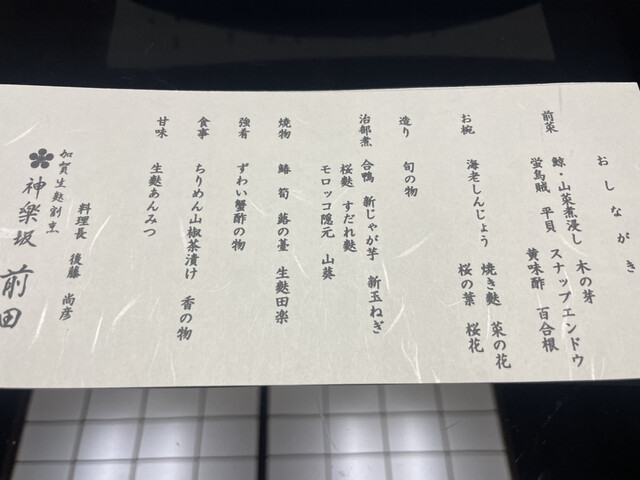 おしながき
前菜 鯨・山菜煮浸し 木の芽
蛍烏賊 平貝 スナップエンドウ
黄味酢 百合根
お椀 海老しんじょう 焼き麩 菜の花
桜の葉 桜花
造り 旬の物
治部煮 合鴨 新じゃが芋 新玉ねぎ
桜麩 すだれ麩
モロッコ隠元 山葵
焼物 鰆 筍 蕗の薹 生麩田楽
強肴 ずわい蟹酢の物
食事 ちりめん山椒茶漬け 香の物
甘味 生麩あんみつ
料理長 後藤 尚彦
加賀生麩割烹
神楽坂 前田